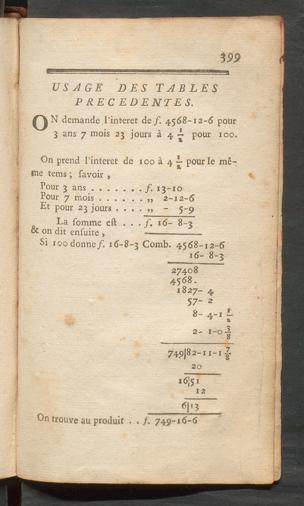 399
USAGE DES TABLES
PRECEDENTES.
ON demande l'interet de f. 4568-12-6 pour
3 ans 7 mois 23 jours à 4 1/2 pour 100.
On prend l'interet de 100 à 4 1/2 pour le mê-
me tems ; savoir ,
Pour 3 ans . . . . . . . f. 13-10
Pour 7 mois . . . . . . ,, 2-12-6
Et pour 23 jours . . . . ,, - 5-9
La somme est . . . f. 16- 8-3
& on dit ensuite ,
Si 100 donne f. 16-8-3 Comb. 4568-12-6
16- 8-3
27408
4568.
1827- 4
57- 2
8- 4-1 1/2
2- 1-0 3/8
749|82-11-1 7/8
20
16|51
12
6|13
On trouve au produit . . f. 749-16-6